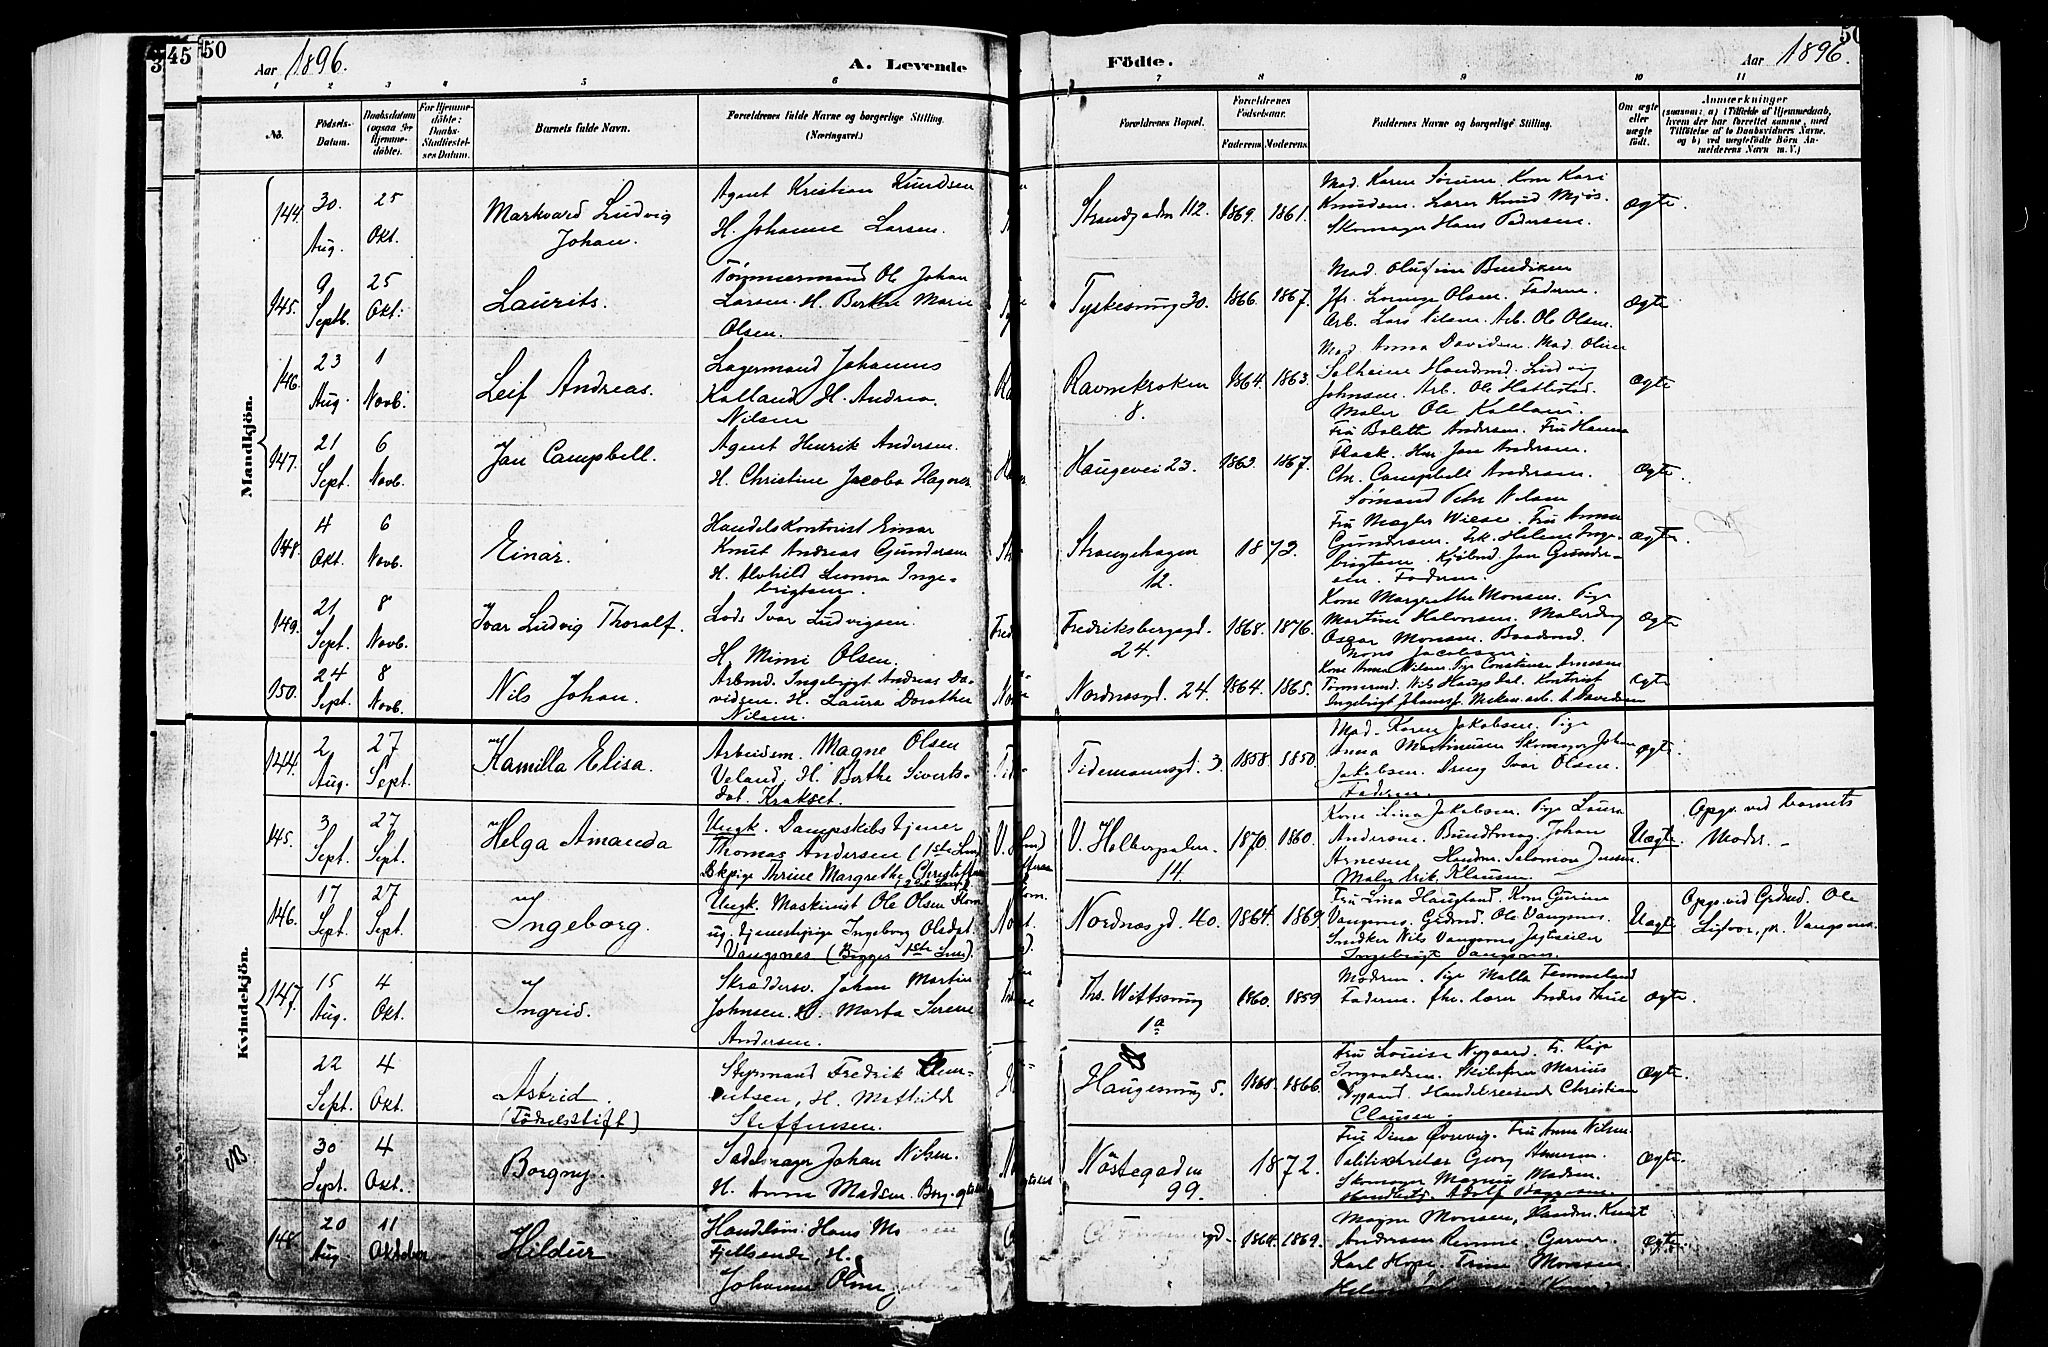 3 45 50
Aar 1896.
A. Levende
Födte.
Aar 1896.
50
1 2 3 4 5 6 7 8 9 10 11
No.
Födsels-
Datum.
Daabsdatum
(ogsaa for
Hjemme-
döbte).
For Hjemme-
döbte:
Daabs-
Stadfæstel-
ses Datum.
Barnets fulde Navn.
Forældrenes fulde Navne og borgerlige Stilling.
(Næringsvei.)
Forældrenes Bopæl.
Forældrenes
Födselsaar.
Faderens Moderens
Faddernes Navne og borgerlige Stilling.
Om ægte
eller
uægte
födt.
Anmærkninger
(saasom: a) i Tilfælde af Hjemmedaab,
hvem der har forrettet samme, med
Tilföielse af to Daabsvidners Navne.
og b) ved uægtefödte Börn An-
melderens Navn m. V.)
Mandkjön.
144. 30. Aug. 25 Okt.
Markvard Ludvig
Johan.
Agent Kristian Knudsen
H. Johanne Larsen.
Strandgaden 112. 1869. 1861.
Mad. Karen Sörum. Kone Kari
Knudsen. Lærer Knud Mjös.
Skomager Hans Pedersen.
Ægte.
145. 9 Septb. 25 Okt:
Laurits.
Tömmermand Ole Johan
Larsen. H. Berthe Marie
Olsen.
Tyskesmug 30. 1866. 1867.
Mad. Olufine Bendixen
Jfr. Lovinge Olsen. Faderen.
Arb. Lars Nilsen. Arb. Ole Olsen.
Ægte
146. 23 Aug. 1 Novb.
Leif Andreas.
Lagermand Johannes
Kalland H. Andrea
Nilsen
Ravnekroken
8.
1864. 1863.
Mad. Anna Davidsen. Mad. Oline
Solheim Handsmd. Ludvig
Johnsen. Arb. Ole Hatlestad.
Maler Ole Kalland.
Ægte
147. 21 Sept. 6 Novb.
Jan Campbell.
Agent Henrik Andersen.
H. Christine Jacoba Hagerer
Haugevei 23. 1863 1867.
Fru Bolette Andersen. Fru Hanna
Flaak. Herr Jan Andersen.
Chr. Campbell Andersen.
Sömand Peter Nilsen
Ægte.
148. 4 Okt. 6 Novb.
Einar.
Handelskontorist Einar
Knut Andreas Gundersen
H. Alvhild Leonora Inge-
brigtsen.
Strangehagen
12.
1873.
Fru Mægler Wiese. Fru Anna
Gundersen. Frk. Helene Inge-
brigtsen. Kjöbmd. Jan Gunder-
sen. Faderen.
Ægte.
149. 21 Sept. 8 Novb.
Ivar Ludvig Thoralf.
Lods Ivar Ludvigsen.
H. Mimi Olsen.
Fredriksbergsgd.
24.
1868. 1876.
Kone Margrethe Monsen. Pige
Martine Halvorsen. Malersvd
Oscar Monsen. Baadsmd.
Mons Jacobsen.
Ægte
150. 24 Sept. 8 Novb.
Nils Johan.
Arbmd. Ingebrigt Andreas Da-
vidsen. H. Laura Dorothea
Nilsen.
Nordnesgd. 24. 1864. 1865.
Kone Anna Nilsen. Pige Constanse Arnesen
Tömmermd. Nils Haugsdal. Kontorist
Ingebrigt Johannes. Mekan. arb. A. Davidsen
Ægte
Kvindekjön.
144. 2 Aug. 27 Sept.
Kamilla Elisa.
Arbeidsm. Magne Olsen
Veland, H. Berthe Siverts-
dat. Krakset.
Tidemannsgd. 3. 1858. 1850.
Mad. Karen Jakobsen. Pige
Anna Martinusen Skomager Johan
Jakobsen. Dreng Ivar Olsen.
Faderen.
Ægte.
145. 3 Sept. 27 Sept.
Helga Amanda
Ungk. Dampskibstjener
Thomas Andersen (1ste Lms)
Bkpige Thrine Margrethe Christoffersen
(2det Lms)
V. Holbergsalm.
14.
1870. 1860.
Kone Lina Jakobsen. Pige Laura
Andersen. Bundtmag. Johan
Arnesen. Handsm. Salomon Jensen
Maler Erik Klausen.
Uægte.
Opgv. ved barnets
Moder. -
146. 17 Sept. 27 Sept.
Ingeborg.
Ungk. Maskinist Ole Olsen Kom
ug. tjenestepige Ingeborg Olsdat.
Vangsnes (Begges 1ste Lms).
Nordnesgd. 40. 1864. 1869
Fru Lina Haugland. Kone Gurine
Vangsnes. Grdmd. Ole Vangsnes.
Snedker Nils Vangsnes Jagtseiler
Ingebrigt Vangsnes.
Uægte
Opgv. ved Grdmd. Ole
Vangsnes.
147. 15 Aug. 4 Okt.
Ingrid.
Skræddersv. Johan Martin
Johnsen. H. Marta Serene
Andersen.
Ths. Wittsmug
1a
1860. 1859
Moderen. Pige Malla Temmeland
Faderen. fhv. lærer Anders Thue
Ægte.
22 Sept. 4 Okt.
Astrid
(Födselsstift)
Styrmand Fredrik Clem-
entsen, H. Mathilde
Steffensen.
Haugesmug 5. 1868. 1866.
Fru Louise Nygaard. Fr. Kaja
Ingvaldsen. Skibsförer Marius
Nygaard. Handelsreisende Christian
Clausen.
Ægte.
NB. 30 Sept. 4 Okt.
Borgny.
Sadelmager Johan Nilsen.
H. Anna Madsen
Nöstegaden
99.
1872.
Fru Dina Övrevig. Fru Anna Nilsen.
Politisekretær Georg Amnesen.
Skomager Magnus Madsen.
Adolf
Ægte.
148. 20 Aug 11 Oktober
Hildur
Handelsm: Hans Mo
Fjellsende, H.
Johanne Olsen
gd. 1864. 1869.
Magne Monsen, Handsm. Knut
Andersen Remme. Garver
Karl Hope. Trine Monsen
Ægte.